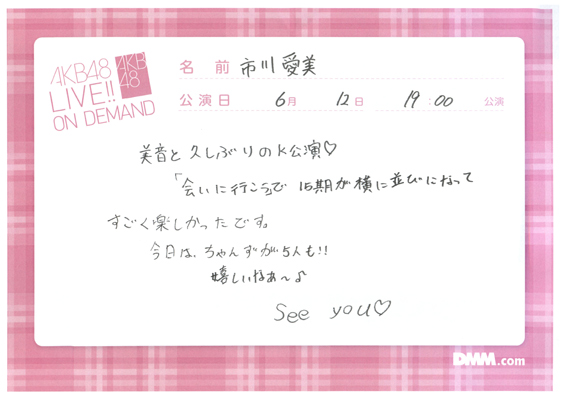 AKB48
LIVE!!
ON DEMAND
AKB
48
名 前 市川愛美
公演日 6月 12日 19:00 公演
美音と久しぶりのK公演♡
「会いに行こう」で 15期が横に並びになって
すごく楽しかったです。
今日は、ちゃんずが5人も!!
嬉しいなあ〜♪
See you♡
DMM.com